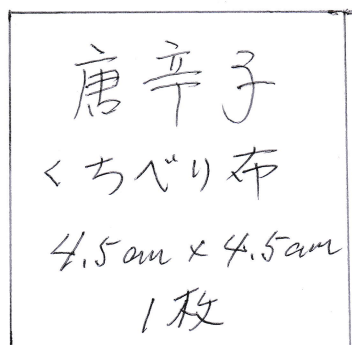 唐辛子
くちべり布
4.5cm × 4.5cm
1枚